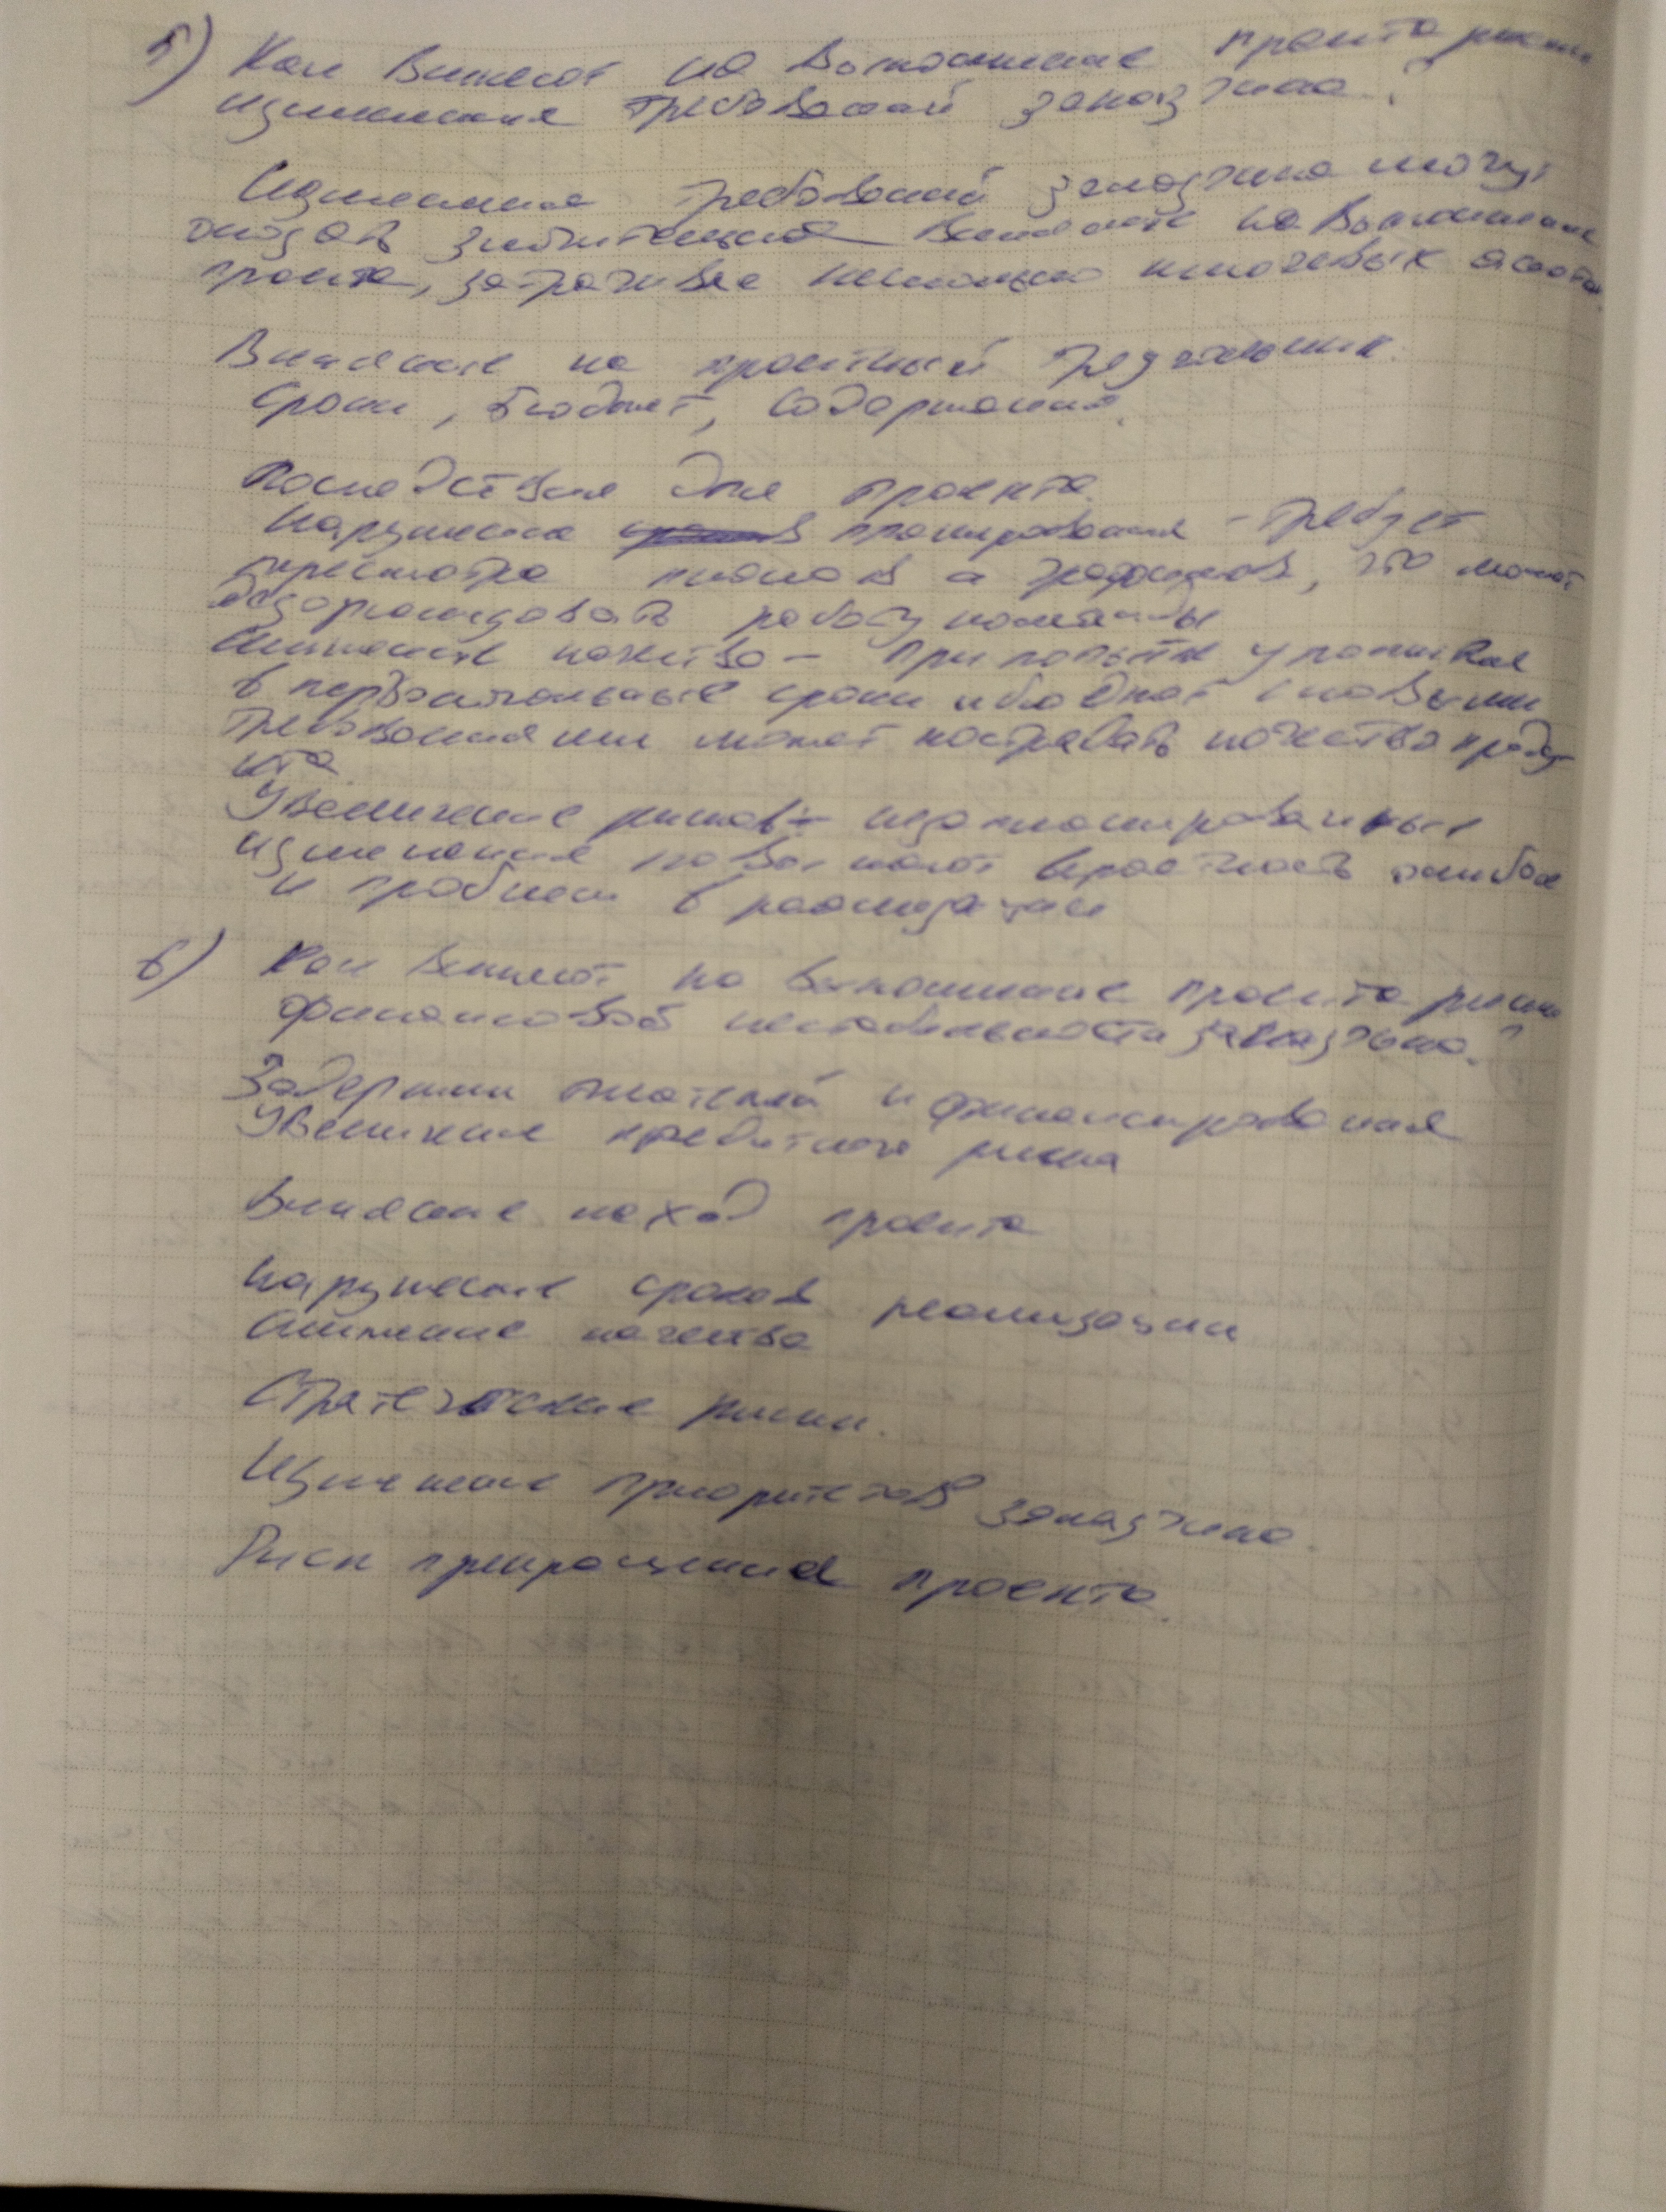 5) Как влияют на выполнение проекта риски
изменения требований заказчика?
Изменения требований заказчика могут
оказать значительное влияние на выполнение
проекта, затрагивая несколько ключевых аспектов
Влияние на проектный треугольник.
Сроки, бюджет, содержание.
Последствия для проекта.
Нарушение планирования - требует
пересмотра планов и графиков, что может
дезорганизовать работу команды
Снижение качества - при попытке уложиться
в первоначальные сроки и бюджет с новыми
требованиями может пострадать качество проду-
кта
Увеличение рисков - незапланированные
изменения повышают вероятность ошибок
и проблем в реализации
6) Как влияют на выполнение проекта риски
финансовой нестабильности заказчика?
Задержки платежей и финансирования
Увеличение кредитного риска
Влияние на ход проекта
Нарушение сроков реализации
Снижение качества
Стратегические риски.
Изменение приоритетов заказчика.
Риск прекращения проекта.